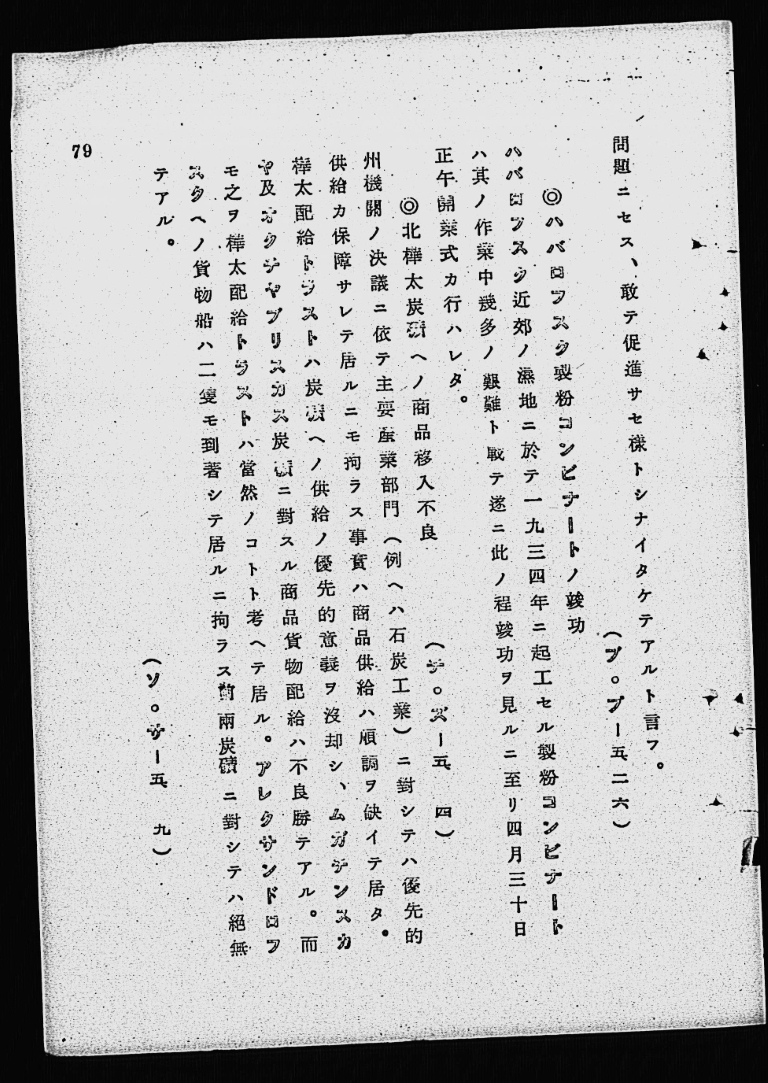 問題ニセス、敢テ促進サセ樣トシナイタケテアルト言フ。
（プ。プー五、二六）
◎ハバロフスク製粉コンビナートノ竣功
ハバロフスク近郊ノ濕地ニ於テ一九三四年ニ起工セル製粉コンビナート
ハ其ノ作業中幾多ノ艱難ト戰テ遂ニ此ノ程竣功ヲ見ルニ至リ四月三十日
正午開業式カ行ハレタ。
（チ。ズー五、四）
◎北樺太炭礦ヘノ商品移入不良
州機關ノ決議ニ依テ主要產業部門（例ヘハ石炭工業）ニ對シテハ優先的
供給カ保障サレテ居ルニモ拘ラス事實ハ商品供給ハ順調ヲ缺イテ居タ。
樺太配給トラストハ炭礦ヘノ供給ノ優先的意義ヲ沒却シ、ムガチンスカ
ヤ及オクチヤブリスカス炭礦ニ對スル商品貨物配給ハ不良勝テアル。而
モ之ヲ樺太配給トラストハ當然ノコトト考ヘテ居ル。アレクサンドロフ
スクヘノ貨物船ハ二隻モ到著シテ居ルニ拘ラス前兩炭礦ニ對シテハ絕無
テアル。
（ソ。サー五、九）
79